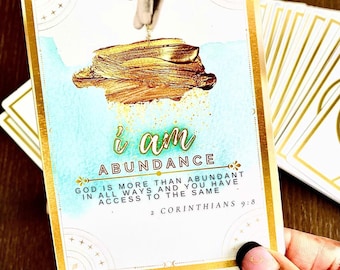 i am
ABUNDANCE
GOD IS MORE THAN ABUNDANT
IN ALL WAYS AND YOU HAVE
ACCESS TO THE SAME
2 CORINTHIANS 9:8